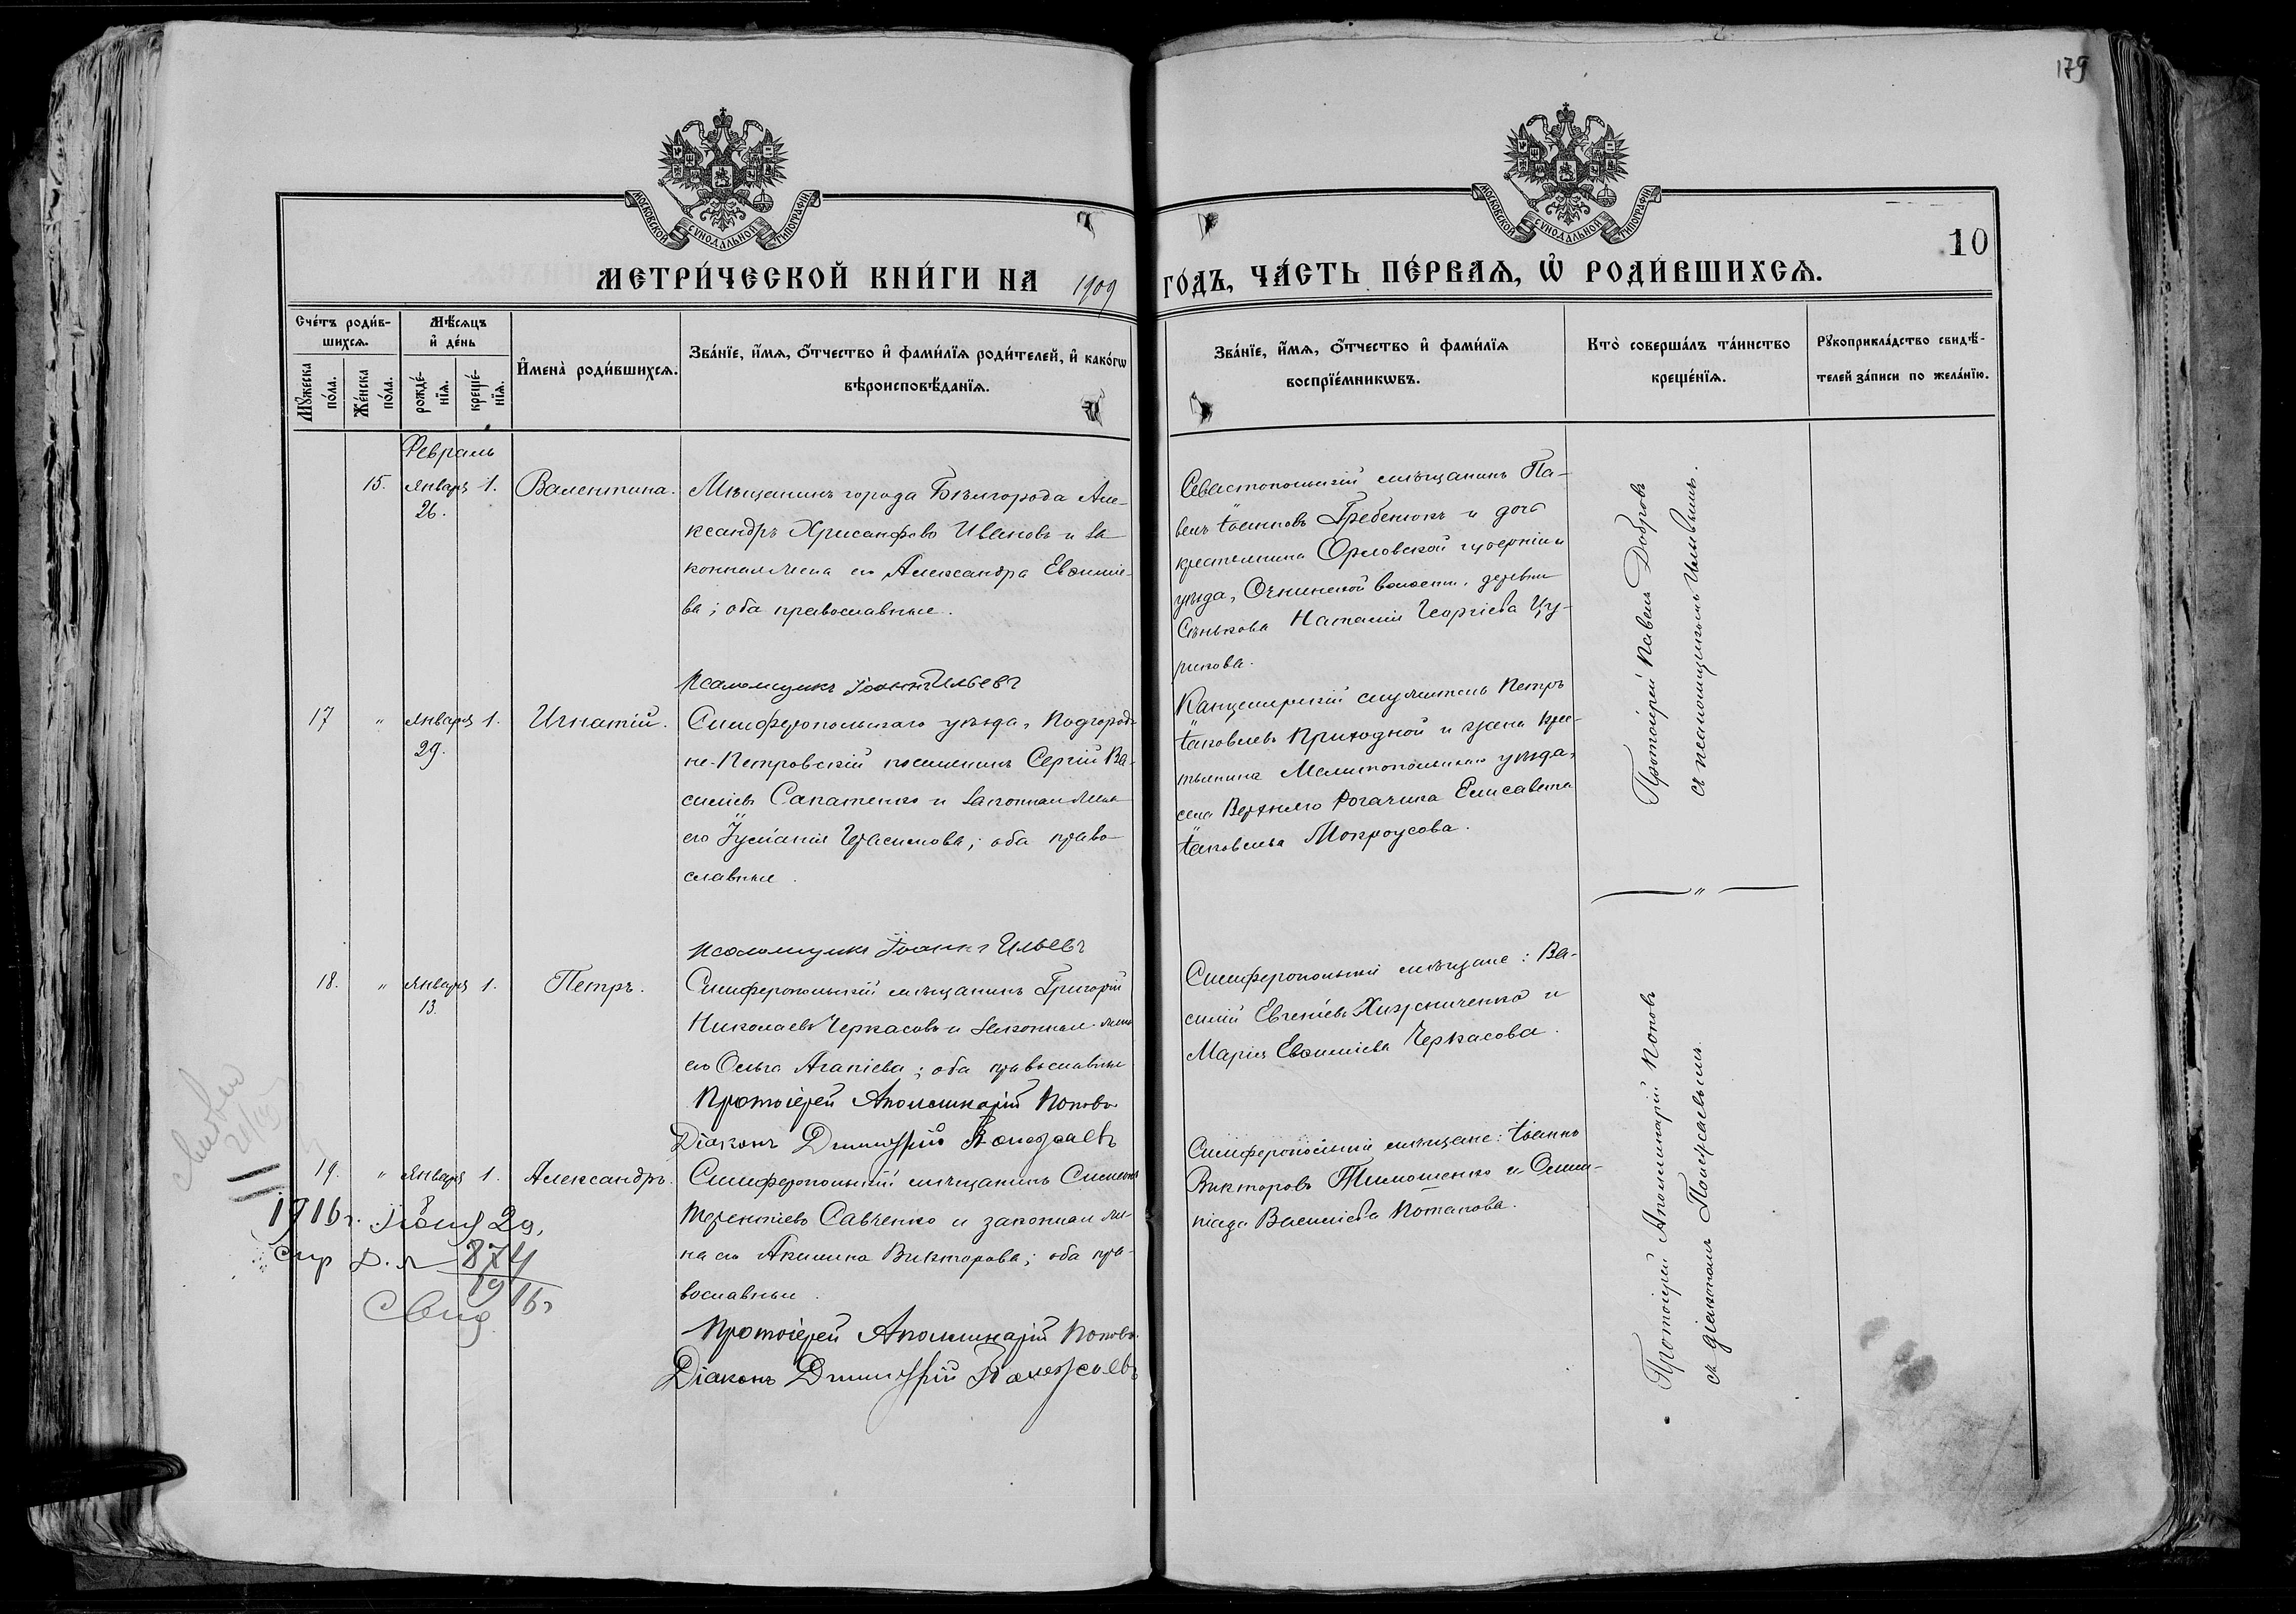 179
МОСКОВСКОЙ СѴНОДАЛЬНОЙ ТИПОГРАФІИ
МОСКОВСКОЙ СѴНОДАЛЬНОЙ ТИПОГРАФІИ
10
МЕТРИ́ЧЕСКОЙ КНИ́ГИ НА 1909 ГО́ДЪ, ЧА́СТЬ ПЕ́РВАѦ, Ѡ҆ РОДИ́ВШИХСѦ.
Сче́тъ роди́в-
шихсѧ.
Мꙋжеска
по́ла.
Же́нска
по́ла.
Мѣ́сѧцъ
и҆ де́нь
рожде́-
нїѧ.
креще́-
нїѧ.
И҆мена̀ роди́вшихсѧ.
Зва́нїе, и҆́мѧ, ѻ҆́тчество и҆ фами́лїѧ роди́телей, и҆ како́гѡ
вѣроисповѣ́данїѧ.
Зва́нїе, и҆́мѧ, ѻ҆́тчество и҆ фами́лїѧ
воспрїе́мникѡвъ.
Кто̀ соверша́лъ та́инство
креще́нїѧ.
Рꙋкоприкла́дство свидѣ́-
телей за́писи по жела́нїю.
Февраль
15. Января 26. 1. Валентина.
Мѣщанинъ города Бѣлгорода Але-
ксандръ Хрисанфовъ Ивановъ и за-
конная жена его Александра Евѳиміе-
ва; оба православные.
Псаломщикъ Іоаннъ Ильевъ
Севастопольскій мѣщанинъ Па-
велъ Іоанновъ Гребенюкъ и дочь
крестьянина Орловской губерніи и
уѣзда, волости, деревни
Сѣнькова Наталія Георгіева Цу-
рикова.
Протоіерей Павелъ Добровъ
съ псаломщикомъ Ильевымъ.
17 " Января 29. 1. Игнатій.
Симферопольскаго уѣзда, Подгород-
не-Петровскій поселянинъ Сергій Ва-
сильевъ Сапатенко и законная жена
его Іуліанія Герасимова; оба право-
славные.
Псаломщикъ Іоаннъ Ильевъ
Канцелярскій служитель Петръ
Іаковлевъ Приходной и жена кре-
стьянина Мелитопольскаго уѣзда,
села Верхняго Рогачика Елисавета
Іаковлева Мокроусова.
"
18. " Января 13. 1. Петръ.
Симферопольскій мѣщанинъ Григорій
Николаевъ Черкасовъ и законная жена
его Ольга Агапіева; оба православные
Протоіерей Аполлинарій Поповъ
Діаконъ Димитрій
Симферопольскіе мѣщане: Ва-
силій Евгеніевъ Хижниченко и
Марія Евѳиміева Черкасова.
Протоіерей Аполлинарій Поповъ
съ діакономъ
19. " Января 8 1. Александръ.
Симферопольскій мѣщанинъ Симеонъ
Терентіевъ Савченко и законная же-
на его Акилина Викторова; оба пра-
вославные.
Протоіерей Аполлинарій Поповъ
Діаконъ Димитрій
Симферопольскіе мѣщане: Іоаннъ
Викторовъ Тимошенко и Олим-
піада Васильева Потапова.
1916г. 29,
874
1916г